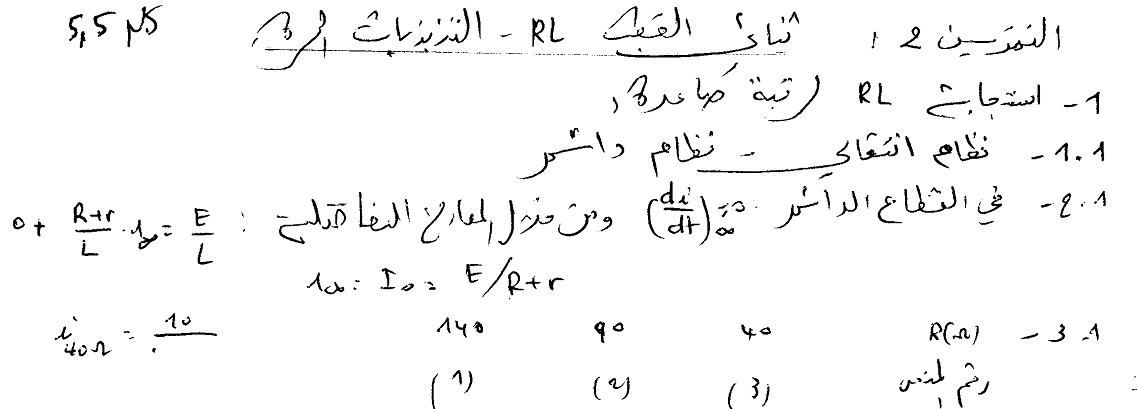 التمرين 2 : ثنائي القطب RL - التذبذبات الحرة 5,5 ن
1- استجابة RL لرتبة صاعدة :
1.1- نظام انتقالي - نظام دائم
2.1- في النظام الدائم (di/dt)∞ = 0 ومن خلال المعادلة التفاضلية : 0 + (R+r)/L . i∞ = E/L
i∞ = I0 = E/R+r
3.1 - R(Ω) 40 90 140 i40Ω = 10
رقم المنحنى (3) (2) (1)